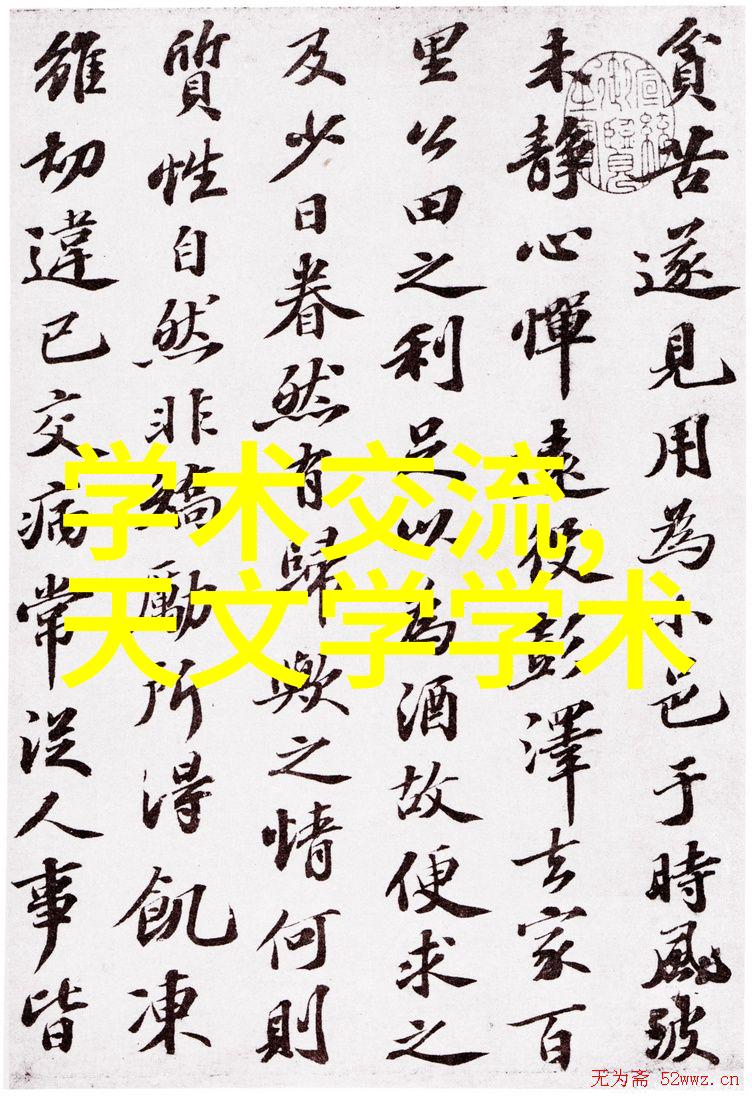 貧苦遂見用為小邑于時風波
未靜心憚遠役彭澤去家百
里公田之利足以為酒故便求之
及少日眷然有歸歟之情何則
質性自然非矯勵所得飢凍
雖切違已交病常從人事皆
学术交流,
天文学学术
无为斋 52wwz.cn